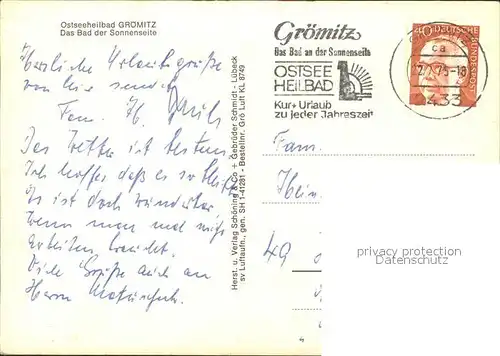 Ostseeheilbad GRÖMITZ
Das Bad der Sonnenseite
Herzliche Urlaubsgrüße
von hier sendet
Fam. H.
Das Wetter ist bestens
Ich hoffe daß es so bleibt
Es ist doch wunderbar
wenn man mal nicht
arbeiten braucht.
Viele Grüße auch an
Herrn
Herst. u. Verlag Schöning & Co + Gebrüder Schmidt - Lübeck
sv Luftaufn., gen. SH 1-41281 - Bestellnr. Grö Luft KL 8749
Grömitz
Das Bad an der Sonnenseite
OSTSEE
HEILBAD
Kur+Urlaub
zu jeder Jahreszeit
40 DEUTSCHE
BUNDESPOST
ca
2433
Fam.
Hein
49
privacy protection
Datenschutz
4